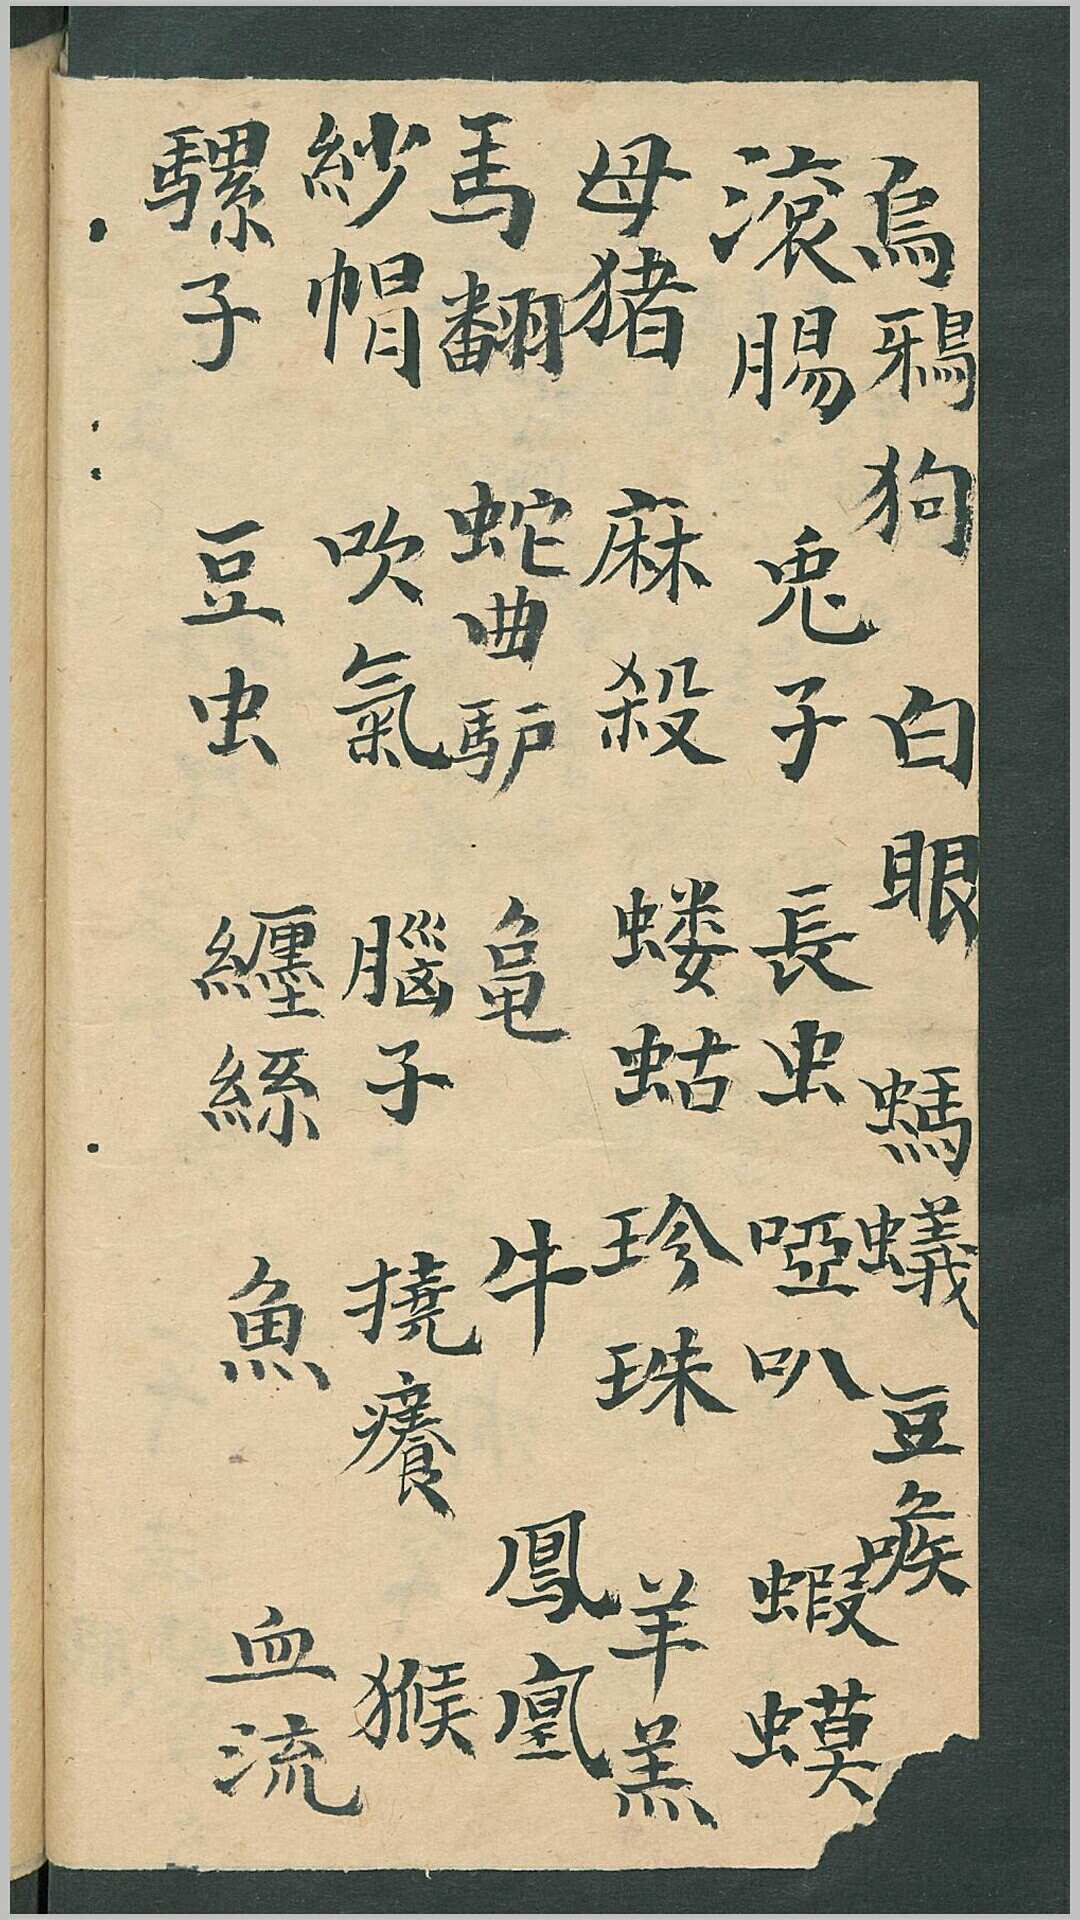 烏鴉狗 白眼 螞蟻 豆喉
滾腸 兎子 長虫 啞叭 蝦蟆
母猪 麻殺 蝼蛄 珍珠 羊羔
馬翻 蛇曲驴 亀 牛 鳳凰
紗帽 吹氣 腦子 撓癢 猴
騾子 豆虫 纏絲 魚 血流